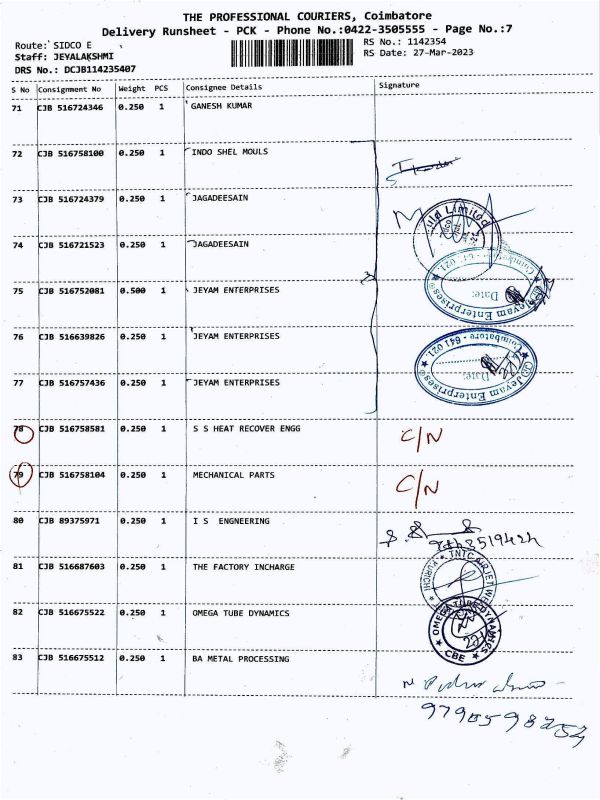 THE PROFESSIONAL COURIERS, Coimbatore
Delivery Runsheet - PCK - Phone No.:0422-3505555 - Page No.:7
Route: SIDCO E RS No.: 1142354
Staff: JEYALAKSHMI RS Date: 27-Mar-2023
DRS No.: DCJB114235407
S No Consignment No Weight PCS Consignee Details Signature
71 CJB 516724346 0.250 1 GANESH KUMAR
72 CJB 516758100 0.250 1 INDO SHEL MOULS
73 CJB 516724379 0.250 1 JAGADEESAIN
uld Limited
74 CJB 516721523 0.250 1 JAGADEESAIN
75 CJB 516752081 0.500 1 JEYAM ENTERPRISES
Jeyam Enterprises
Coimbatore - 641 021.
Date:
76 CJB 516639826 0.250 1 JEYAM ENTERPRISES
77 CJB 516757436 0.250 1 JEYAM ENTERPRISES
Jeyam Enterprises
Coimbatore - 641 021.
Date:
78 CJB 516758581 0.250 1 S S HEAT RECOVER ENGG
C/N
79 CJB 516758104 0.250 1 MECHANICAL PARTS
C/N
80 CJB 89375971 0.250 1 I S ENGNEERING
81 CJB 516687603 0.250 1 THE FACTORY INCHARGE
KURICHI
82 CJB 516675522 0.250 1 OMEGA TUBE DYNAMICS
OMEGA TUBE DYNAMICS
CBE
83 CJB 516675512 0.250 1 BA METAL PROCESSING